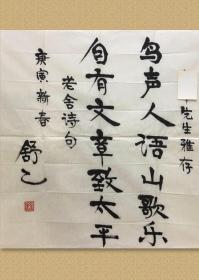 先生雅存
鸟声人语山歌乐
自有文章致太平
老舍诗句
庚寅新春
舒乙